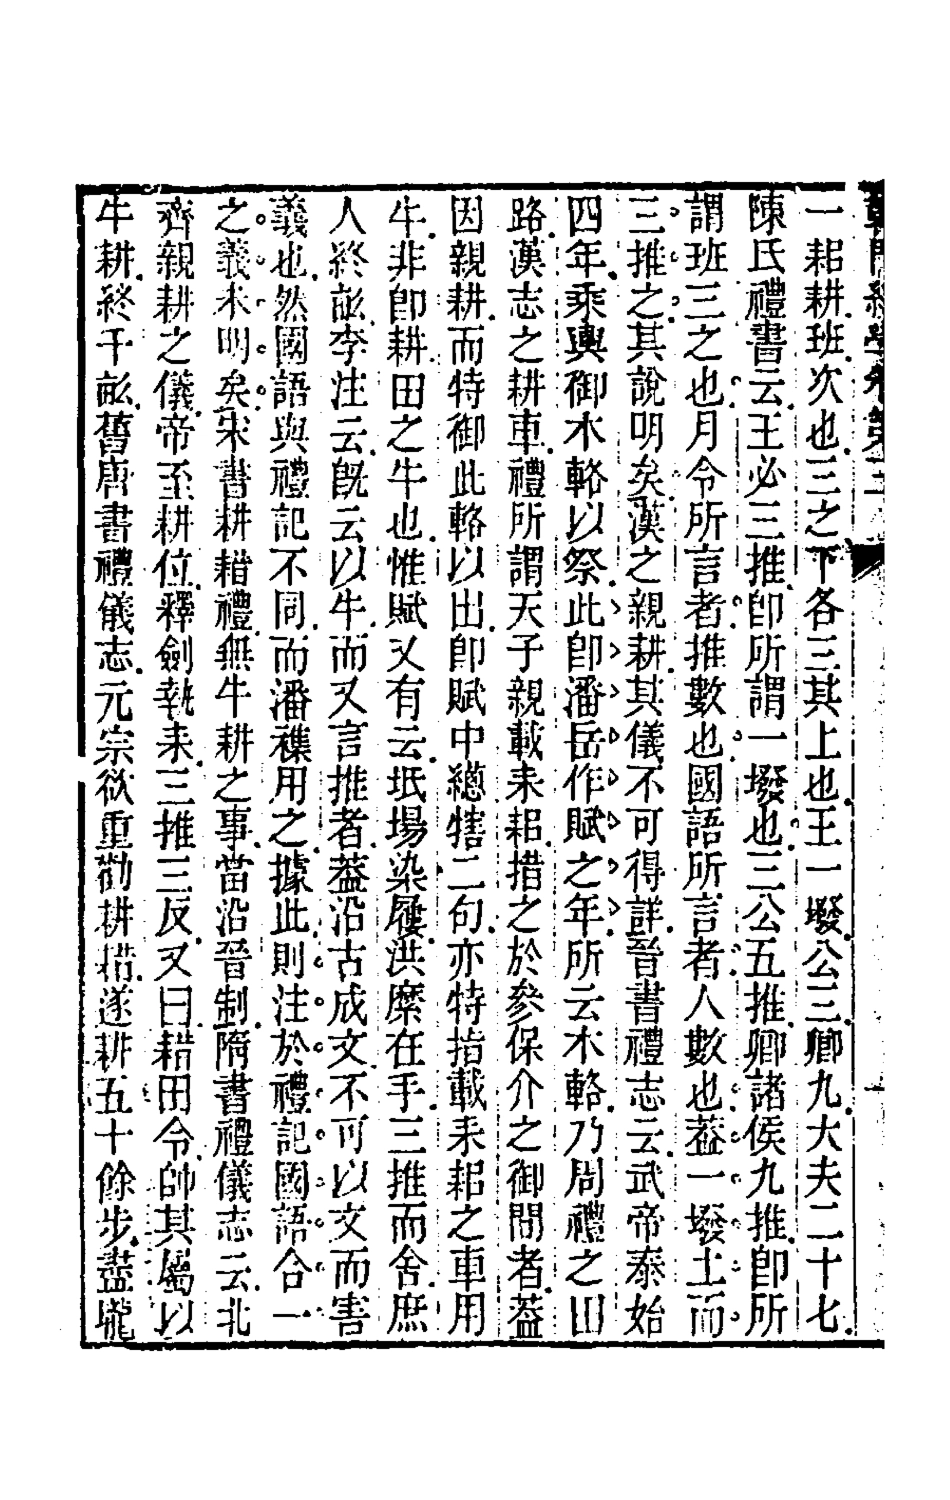 一耜耕班次也三之下各三其上也王一墢公三卿九大夫二十七
陳氏禮書云王必三推卽所謂一墢也三公五推卿諸侯九推卽所
謂班三之也月令所言者推數也國語所言者人數也葢一墢土而
三推之其說明矣漢之親耕其儀不可得詳晉書禮志云武帝泰始
四年乘輿御木輅以祭此卽潘岳作賦之年所云木輅乃周禮之田
路漢志之耕車禮所謂天子親載耒耜措之於參保介之御閒者葢
因親耕而特御此輅以出卽賦中總犗二句亦特指載耒耜之車用
牛非卽耕田之牛也惟賦又有云坻場染屨洪縻在手三推而舍庶
人終畝李注云旣云以牛而又言推者葢沿古成文不可以文而害
義也然國語與禮記不同而潘襍用之據此則注於禮記國語合一
之義未明矣宋書耕耤禮無牛耕之事當沿晉制隋書禮儀志云北
齊親耕之儀帝至耕位釋劍執耒三推三反又曰耤田令帥其屬以
牛耕終千畝舊唐書禮儀志元宗欲重勸耕耤遂耕五十餘步盡壠